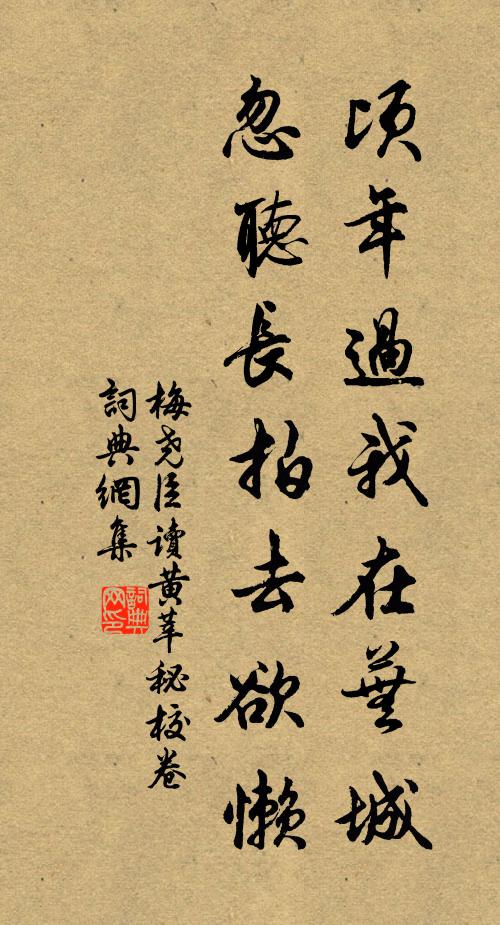 頃年過我在蕪城
忽聽長拍去欲懶
梅尧臣讀黄莘秘校卷
詞典網集
詞典网印